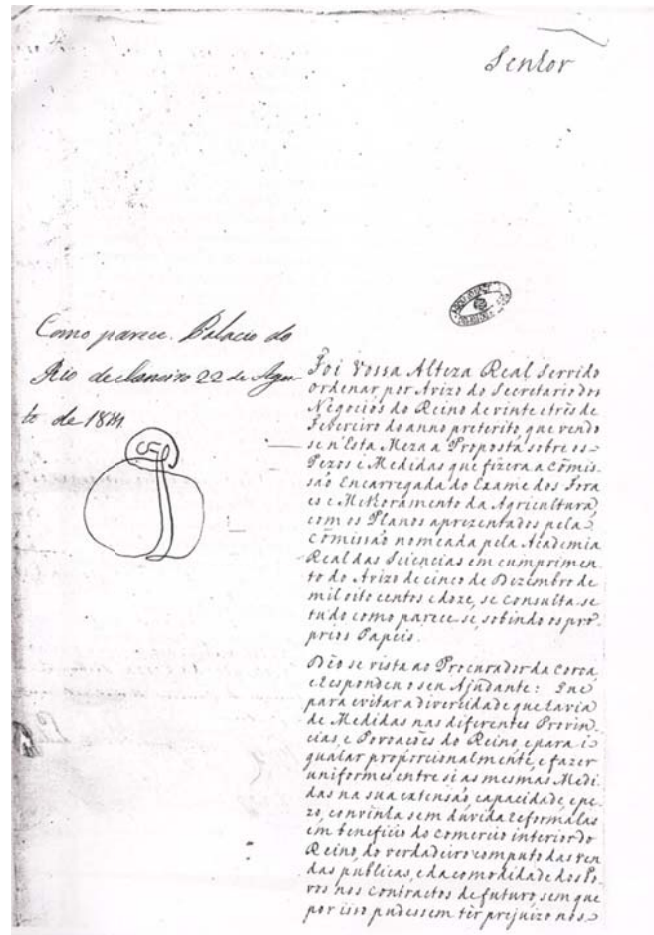 Senhor
Como parece. Palacio do
Rio de Janeiro 22 de Agos-
to de
Foi Vossa Alteza Real Servido
ordenar por Avizo do Secretario dos
Negocios do Reino de vinte e trêz de
Febereiro do anno preterito, que vendo
se n'Esta Meza a Proposta sobre os
Pezos e Medidas que fizera a cõmis-
saõ Encarregada do Exame dos Fora
es e Melhoramento da Agricultura,
com os Planos aprezentados pela
Cõmissaõ nomeada pela Academia
Real das Sciencias em cumprimen
to do Avizo de cinco de Dezembro de
mil oito centos e doze, se consulta-se
tudo como parece-se, sobindo os pro-
prios Papeis.
Dêo se vista ao Procurador da Coroa,
e Respondeu o seu Ajudante: Que
para evitar a divercidade que havia
de Medidas nas diferentes Provin-
cias, e Povoações do Reino, e para i
gualar proporcionalmente, e fazer
uniformes entre si as mesmas Medi
das na sua extensaõ, capacidade, e pe-
zo, convinha sem dúvida reformalas
em beneficio do comercio interior do
Reino, do verdadeiro computo das ren
das publicas, e da comodidade dos Po-
vos nos contractos de futuro sem que
por isso pudessem têr prejuizo nos